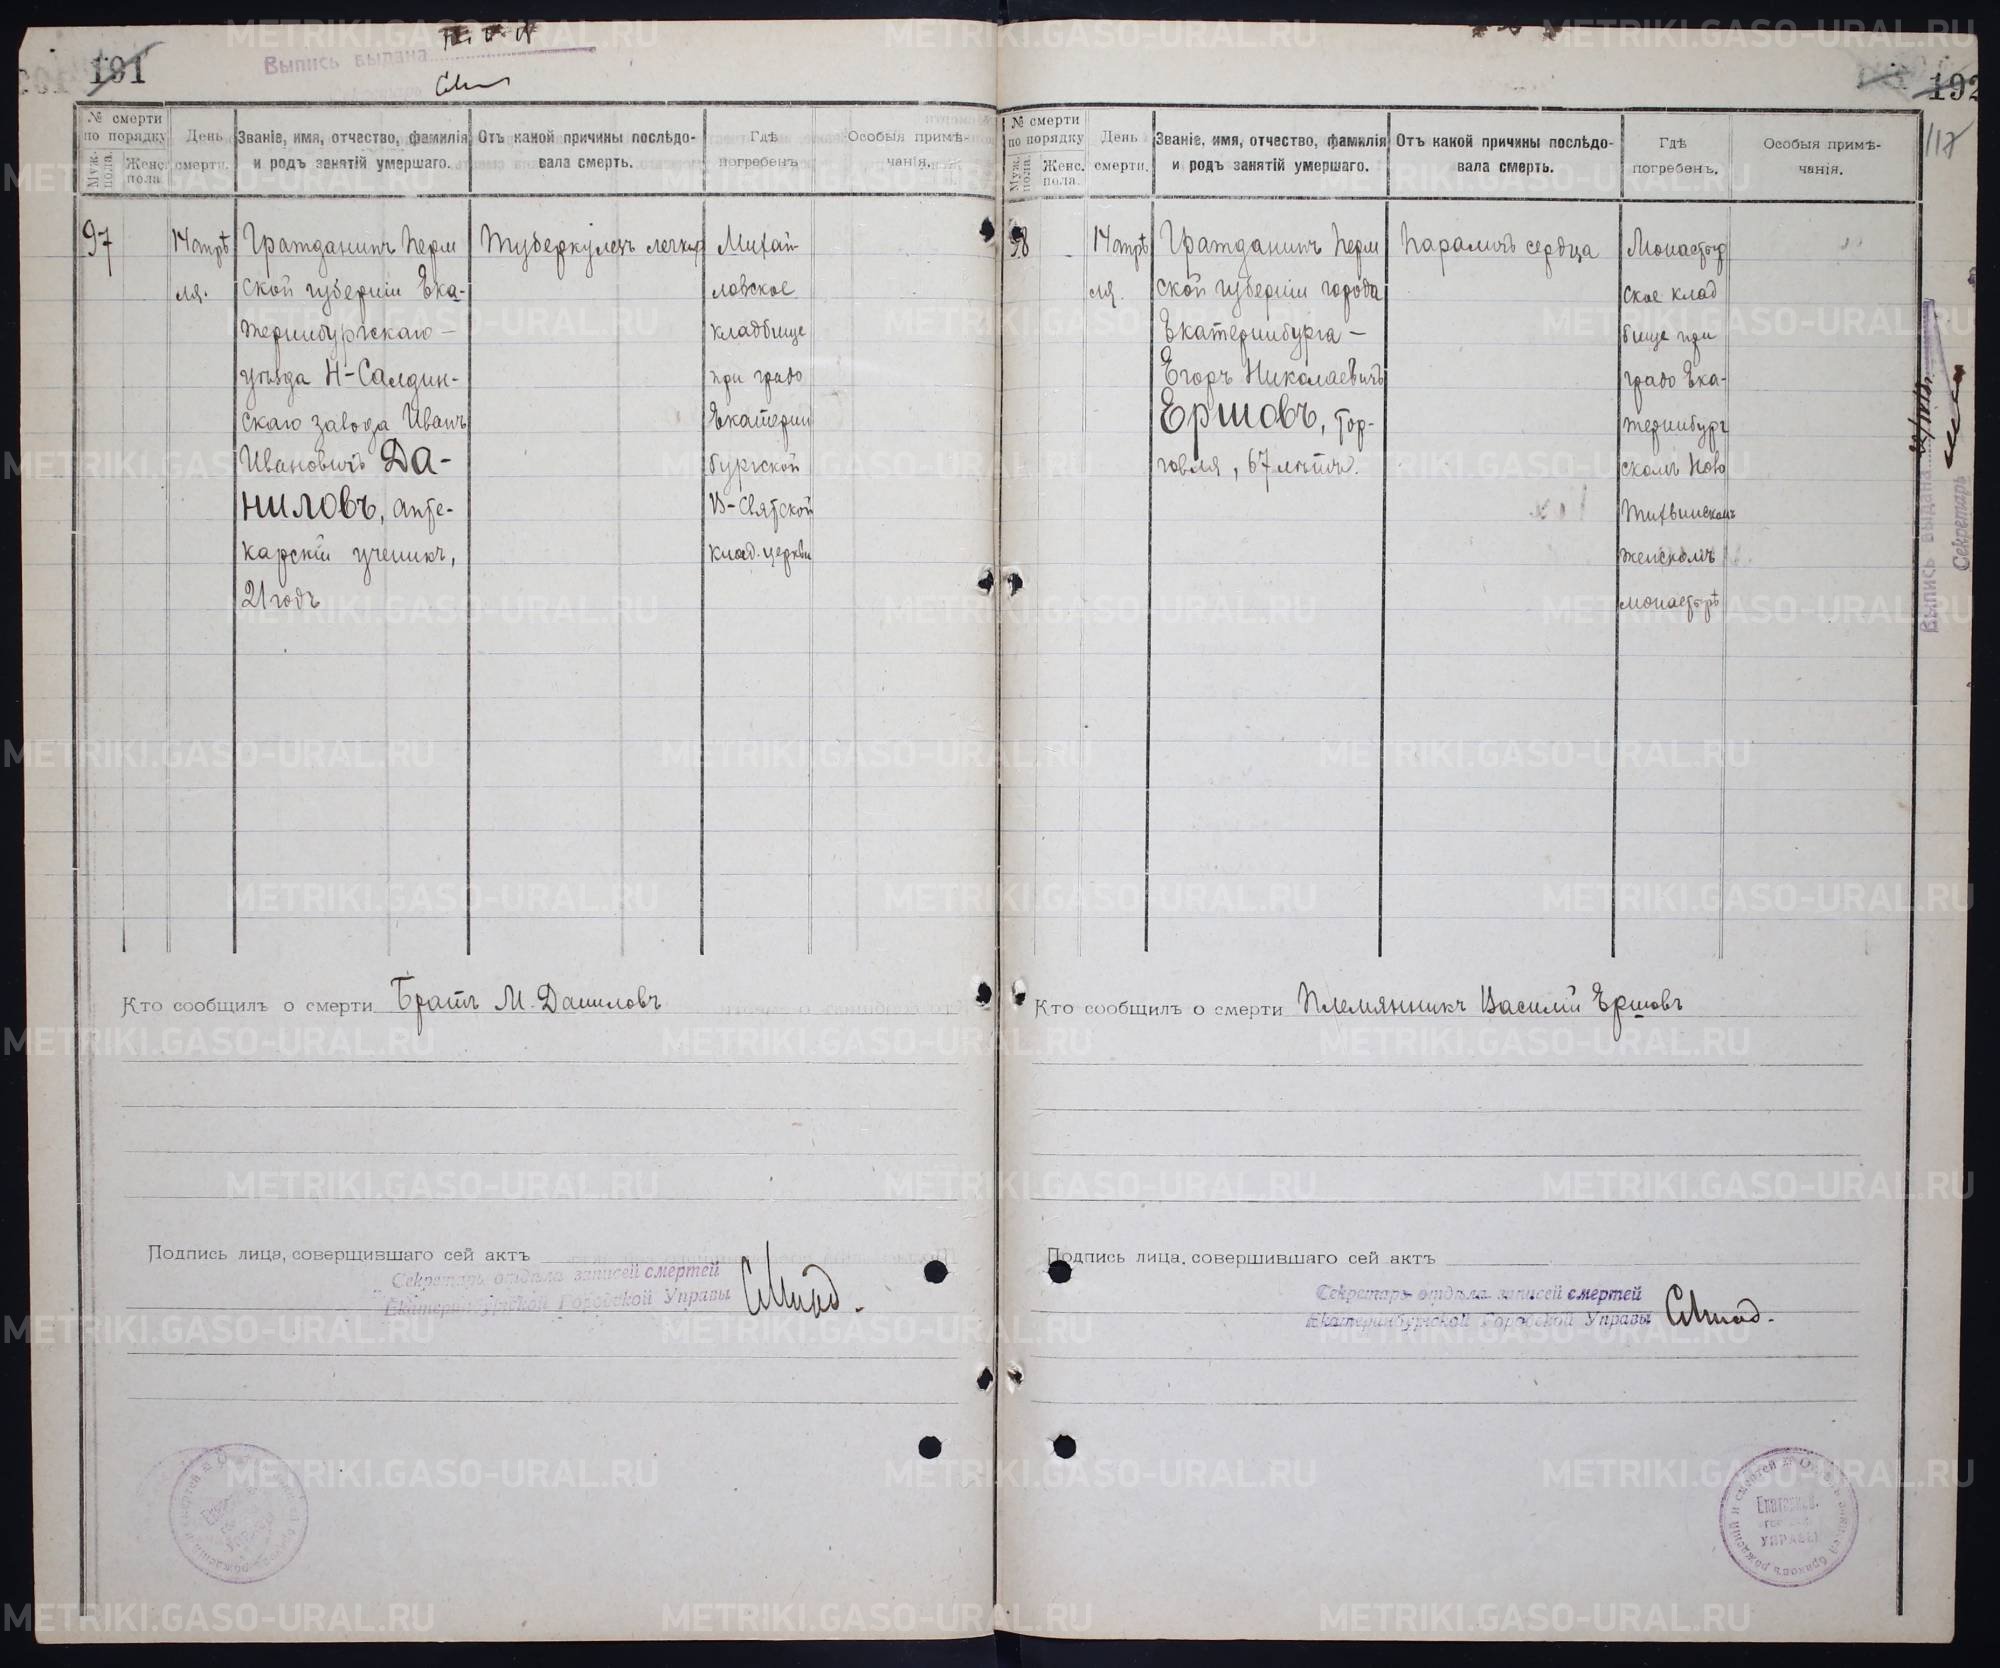 191
Выпись выдана
№ смерти по порядку
Муж. пола.
Женс. пола.
День смерти.
Званіе, имя, отчество, фамилія и родъ занятій умершаго.
Отъ какой причины послѣдовала смерть.
Гдѣ погребенъ.
Особыя примѣчанія.
97
14 апрѣ
ля.
Гражданинъ Перм
ской губерніи Ека-
теринбургскаго —
уѣзда Н-Салдин-
скаго завода Иванъ
Ивановичъ Да-
ниловъ, апте-
карскій ученикъ,
21 годъ
Туберкулезъ легкихъ
Михай
ловское
кладбище
при градо
Екатерин
бургской
В-Святской
клад. церкви
Кто сообщилъ о смерти Братъ М. Даниловъ
Подпись лица, совершившаго сей актъ
Секретарь отдѣла записей смертей
Екатеринбургской Городской Управы
192
117
№ смерти по порядку
Муж. пола.
Женс. пола.
День смерти.
Званіе, имя, отчество, фамилія и родъ занятій умершаго.
Отъ какой причины послѣдовала смерть.
Гдѣ погребенъ.
Особыя примѣчанія.
98
14 апрѣ
ля.
Гражданинъ Перм
ской губерніи города
Екатеринбурга —
Егоръ Николаевичъ
Ершовъ, тор-
говля, 67 лѣтъ.
Параличъ сердца
Монастыр
ское клад
бище при
градо Ека-
теринбург
скомъ Ново
Тихвинскомъ
женскомъ
монастырѣ
Выпись выдана
Секретарь
Кто сообщилъ о смерти Племянникъ Василій Ершовъ
Подпись лица, совершившаго сей актъ
Секретарь отдѣла записей смертей
Екатеринбургской Городской Управы
Екатеринб.
УПРАВЫ
METRIKI.GASO-URAL.RU